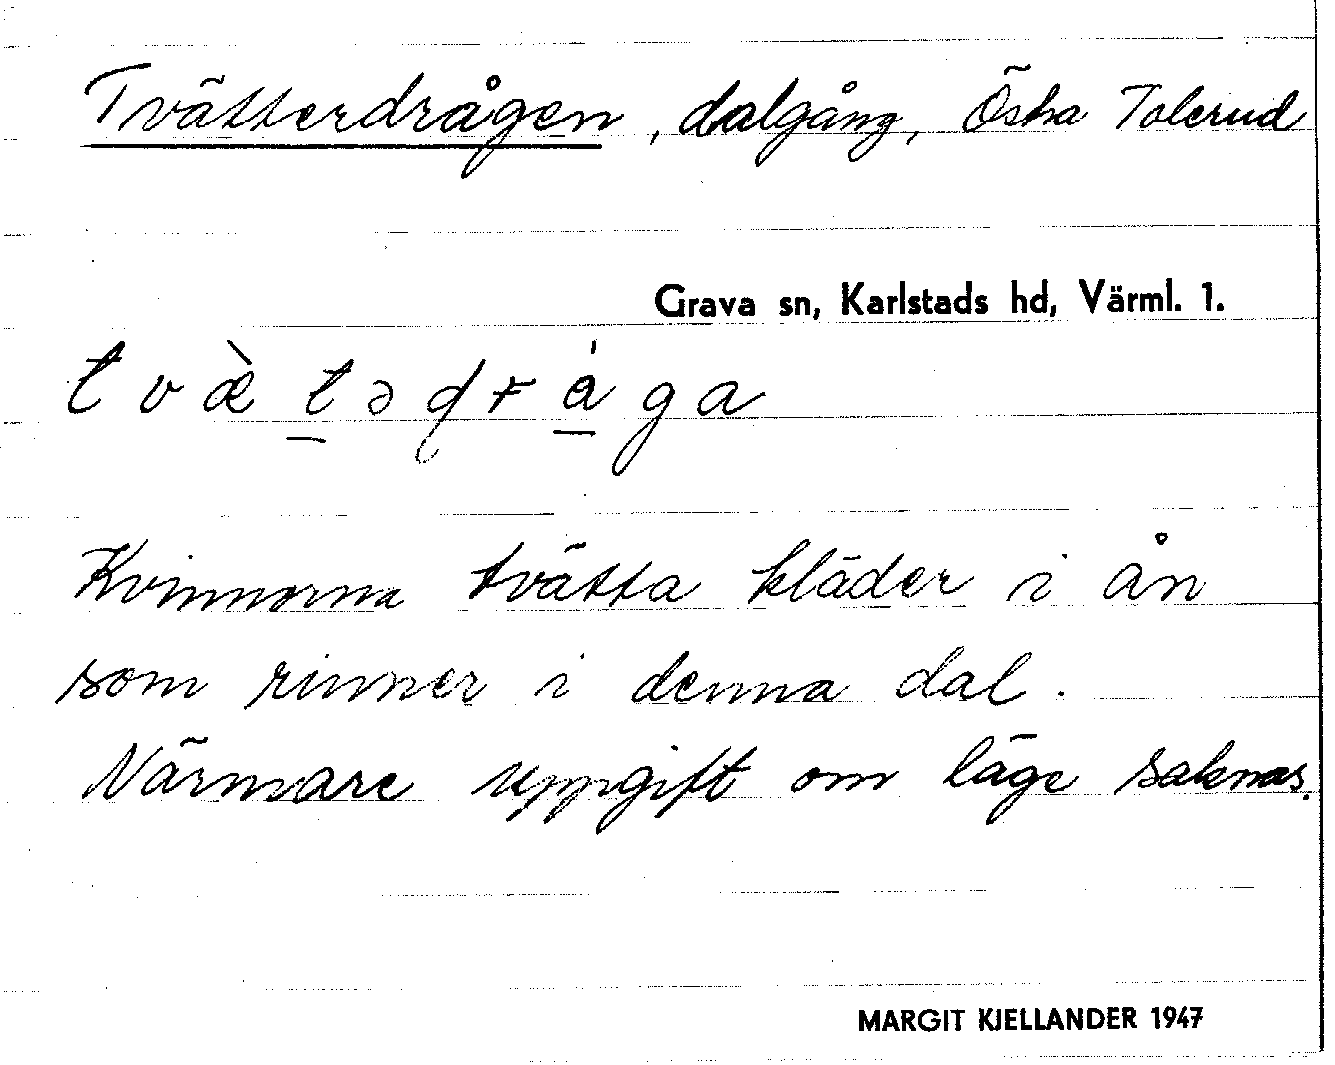 Tvätterdrågen, dalgång, Östra Tolerud
Grava sn, Karlstads hd, Värml. 1.
Kvinnorna tvätta kläder i ån
som rinner i denna dal.
Närmare uppgift om läge saknas.
MARGIT KJELLANDER 1947